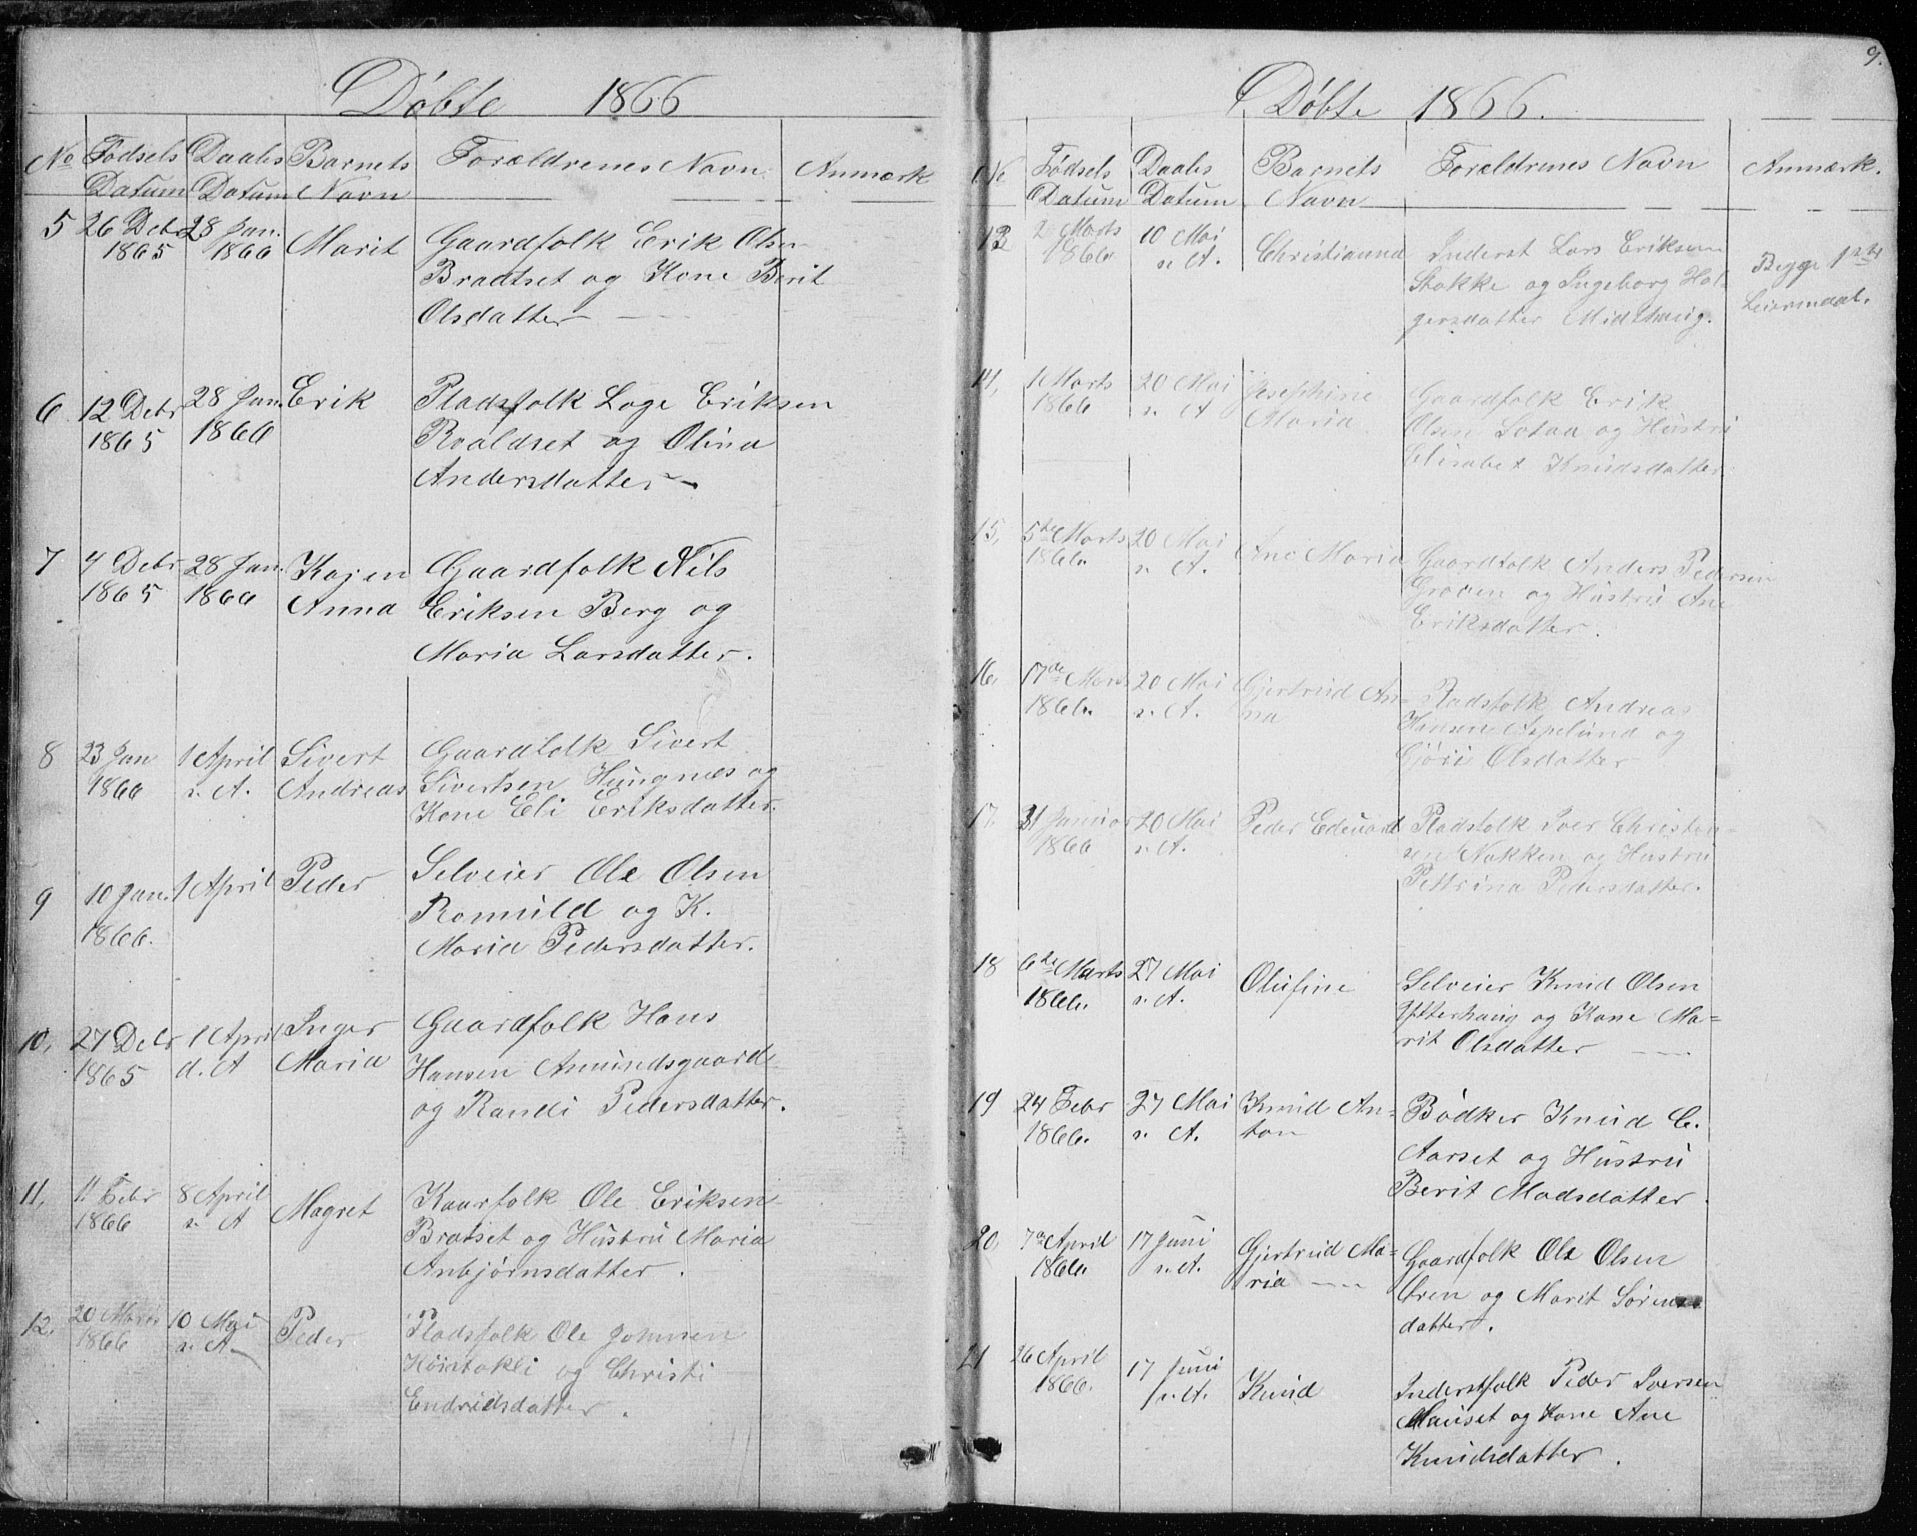 Døbte 1866
No Fødsels Datum Daabs Datum Barnets Navn Forældrenes Navn Anmærk
5 26 Debr 1865 28 Jan. 1866 Marit Gaardfolk Erik Olsen
Bradtset og Kone Berit
Olsdatter
6 12 Debr 1865 28 Jan. 1866 Erik Pladsfolk Lage Eriksen
Roaldset og Olina
Andersdatter
7 4 Debr 1865 28 Jan. 1866 Kajen Anna Gaardfolk Nils
Eriksen Berg og
Maria Larsdatter.
8 23 Jan 1866 1 April s. A. Sivert Andreas Gaardfolk Sivert
Sivertsen Hungnes og
Kone Eli Eriksdatter.
9 10 Jan. 1866. 1 April Peder Selveier Ole Olsen
Romuld og K.
Maria Pedersdatter.
10, 27 Debr 1865 1 April d. A Inger Maria Gaardfolk Hans
Hansen Amundsgaard
og Randi Pedersdatter.
11, 11 Febr 1866 8 April s. A Magret Kaarfolk Ole Eriksen
Bratset og Hustru Maria
Anbjørnsdatter.
12. 20 Marts 1866 10 Mai s. A. Peder Pladsfolk Ole Johnsen
og Christi
Endridsdatter.
9.
Døbte 1866.
No Fødsels Datum Daabs Datum Barnets Navn Forældrenes Navn Anmærk.
13 2 Marts 1866 10 Mai s. A. Christianna Inderst Lars Eriksen
Stokke og Ingeborg Hol-
gersdatter Midthaug.
Begge 1ste
Leiermaal.
14, 1 Marts 1866 20 Mai s. A Josephine Maria Gaardfolk Erik
Olsen Sotaa og Hustru
Elisabet Knudsdatter
15, 5te Marts 1866. 20 Mai s. A. Ane Maria Gaardfolk Anders Pedersen
Groven og Hustru Ane
Eriksdatter.
16. 17de Marts 1866. 20 Mai s. A. Gjertrud An-
na Pladsfolk Andreas
Hansen Aspelund og
Gjøri Olsdatter
17. 31 Januar 1866 20 Mai s. A. Peder Edevard Pladsfolk Iver Christen-
sen Nakken og Hustru
Pettrina Pedersdatter.
18 6te Marts 1866. 27 Mai s. A. Olufine Selveier Knud Olsen
Ytterhaug og Kone Ma=
rit Olsdatter
19 24 Febr 1866. 27 Mai s. A. Knud An-
ton Bødker Knud C.
Aarset og Hustru
Berit Madsdatter.
20, 7de April 1866. 17 Juni s. A. Gjertrud Ma-
ria Gaardfolk Ole Olsen
Øren og Marit Sørens
datter.
21 26 April 1866. 17 Juni s. A. Knud Inderstfolk Peder Iversen
Mauset og Kone Ane
Knudsdatter.